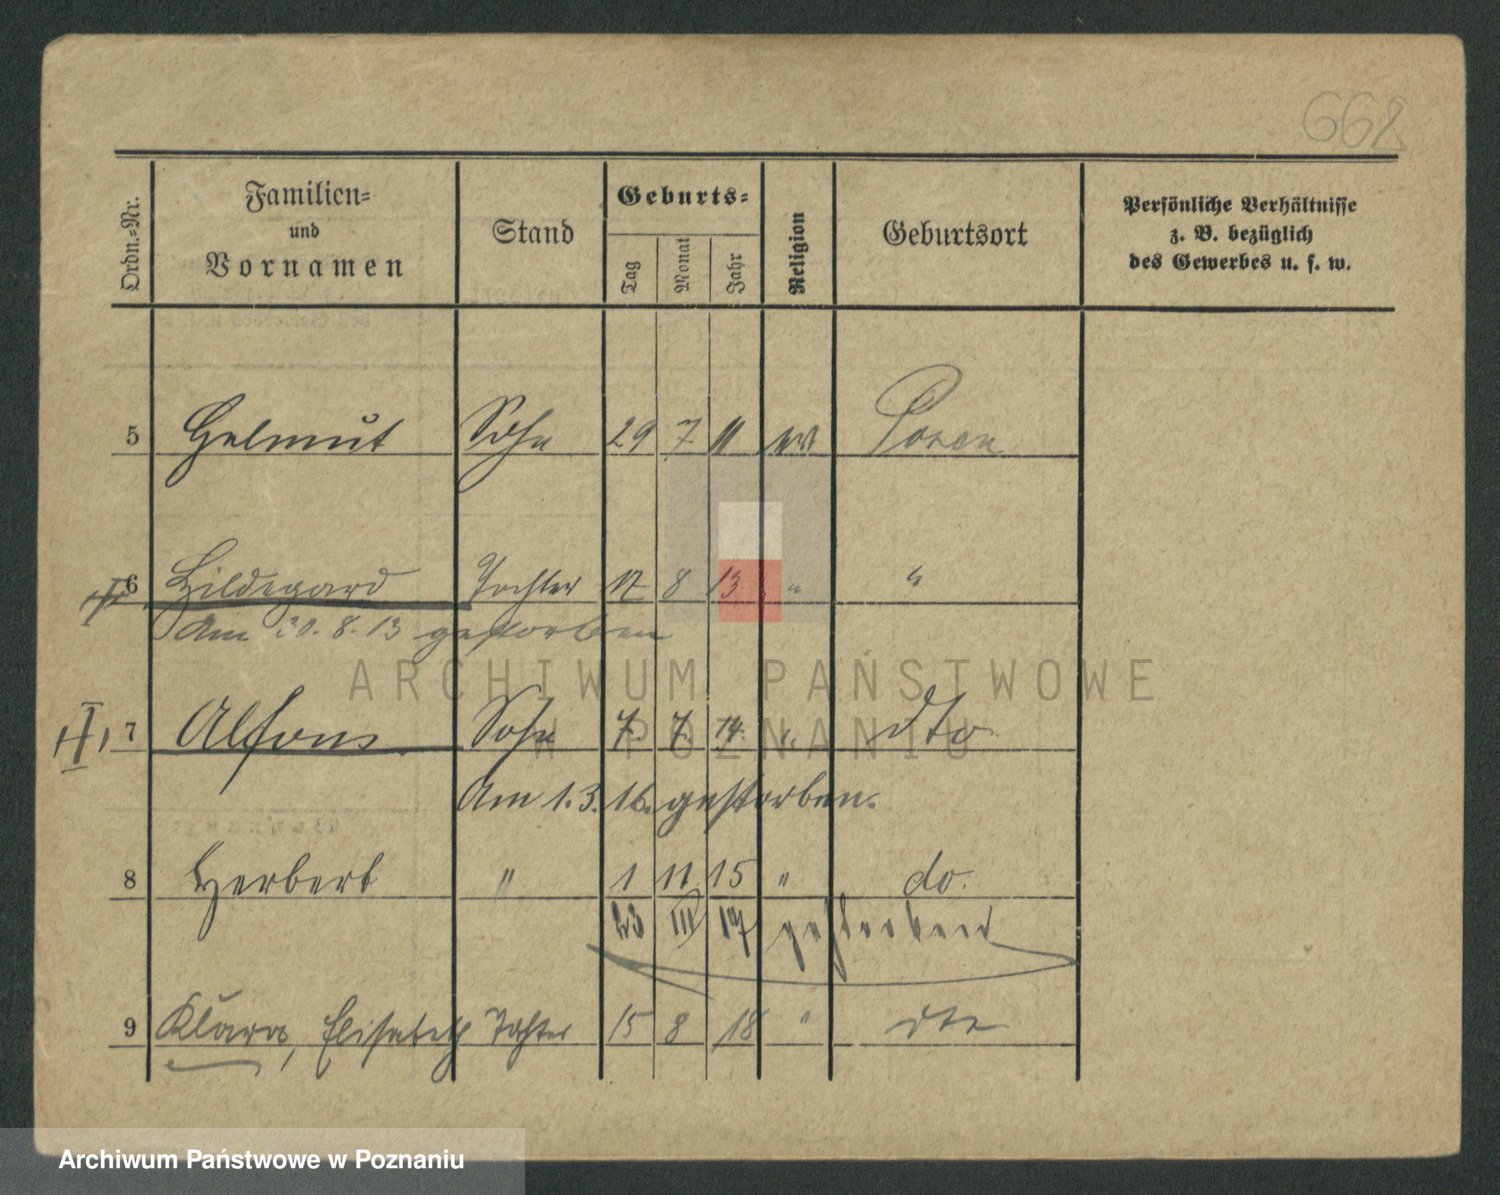 668
Ordn.-Nr. Familien- und Vornamen Stand Geburts- Tag Monat Jahr Religion Geburtsort Persönliche Verhältnisse z. B. bezüglich des Gewerbes u. s. w.
5 Helmut Sohn 29 7 11 ev Posen
6 Hildegard Tochter 17 8 13 " "
Am 30.8.13 gestorben
7 Alfons Sohn 7. 7. 14. " dto
Am 1.3.16. gestorben.
8 Herbert " 1 11 15 " do.
23 III 17 gestorben
9 Klara, Elisabeth Tochter 15 8 18 " dto
ARCHIWUM PAŃSTWOWE
W POZNANIU
Archiwum Państwowe w Poznaniu